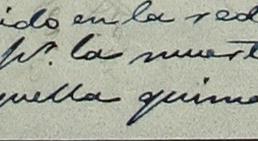 ido en la red
pr. la muert
quella quime